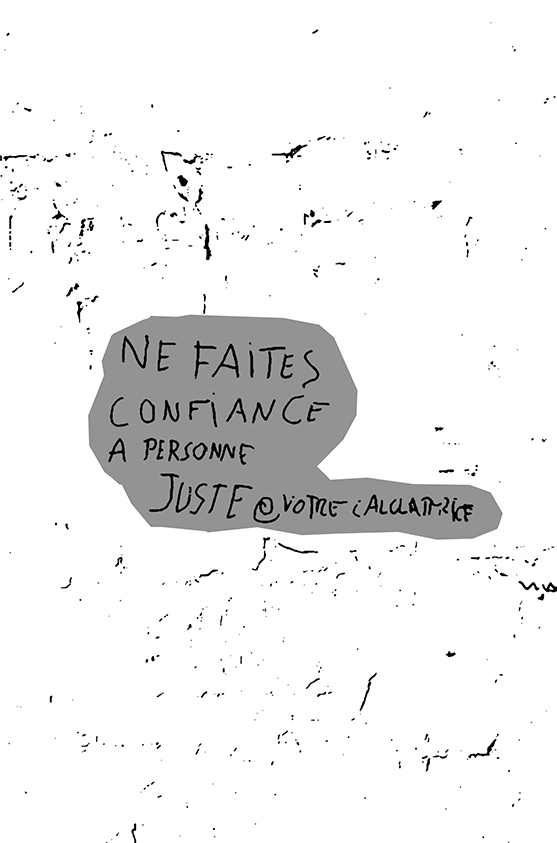 NE FAiTES
CONFiANCE
A PERSONNE
JUSTE @ VOTRE CALCULATRICE